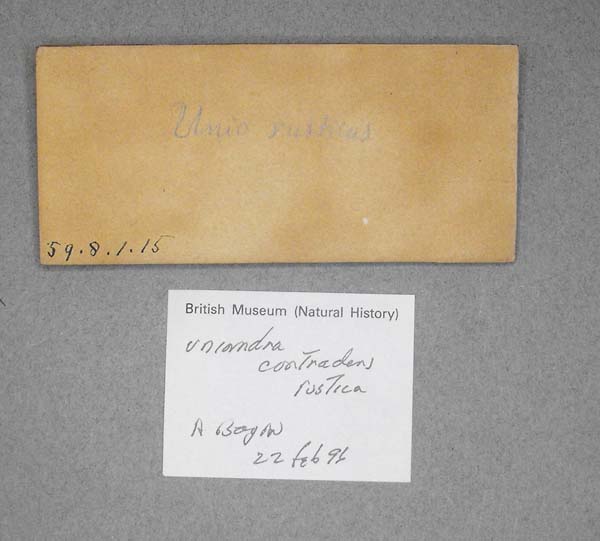 Unio rusticus
59.8.1.15
British Museum (Natural History)
Uniandra
contradens
rustica
A Bogan
22 feb 96